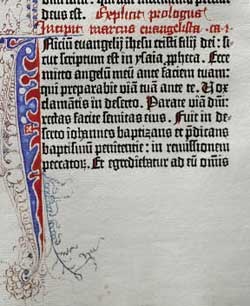 deus est. Explicit prologus
Incipit marcus evangelista. ca. i
Iniciū euangelij ihesu cristi filij dei: si-
cut scriptum est in ysaia ꝓpheta. Ecce
mitto angelū meū ante faciem tuam:
qui preparabit viā tuā ante te. Vox
clamātis in deserto. Parate viā dn̄i:
rectas facite semitas eius. Fuit in de-
serto iohannes baptizans et p̄dicans
baptismū penitentie: in remissionem
peccatorū. Et egrediebatur ad eū omnis